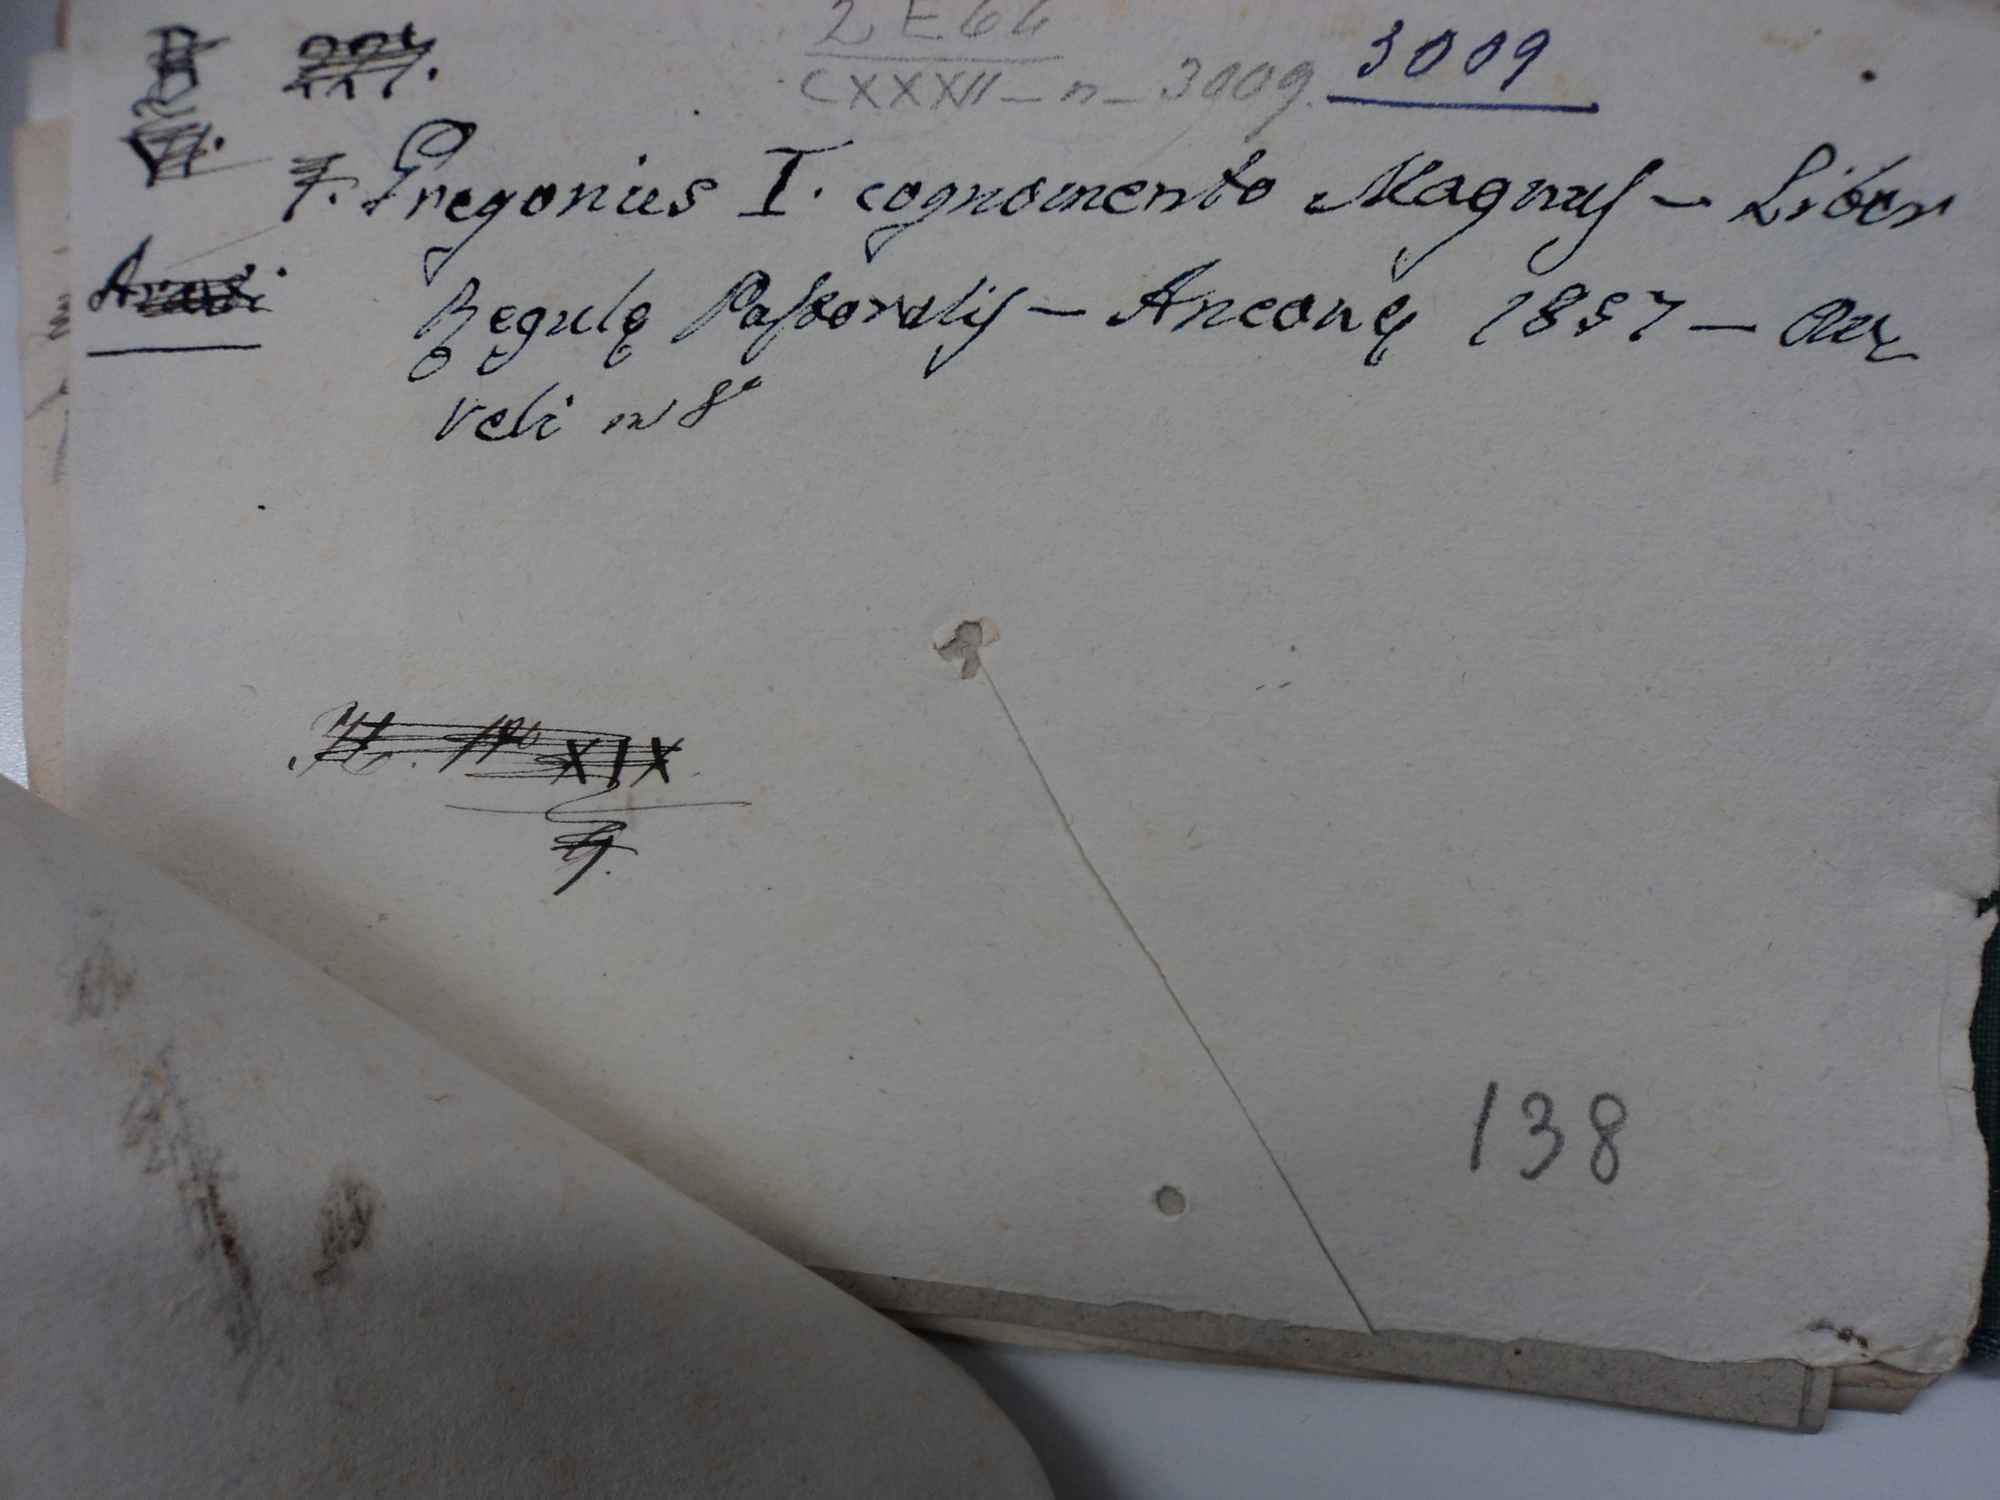 2 E 64
CXXXII - n - 3909. 3009
7. Gregorius I. cognomento Magnus - Liber
Regulę Pastoralis - Anconę 1857 - Au
reli in 8°
XIX
138